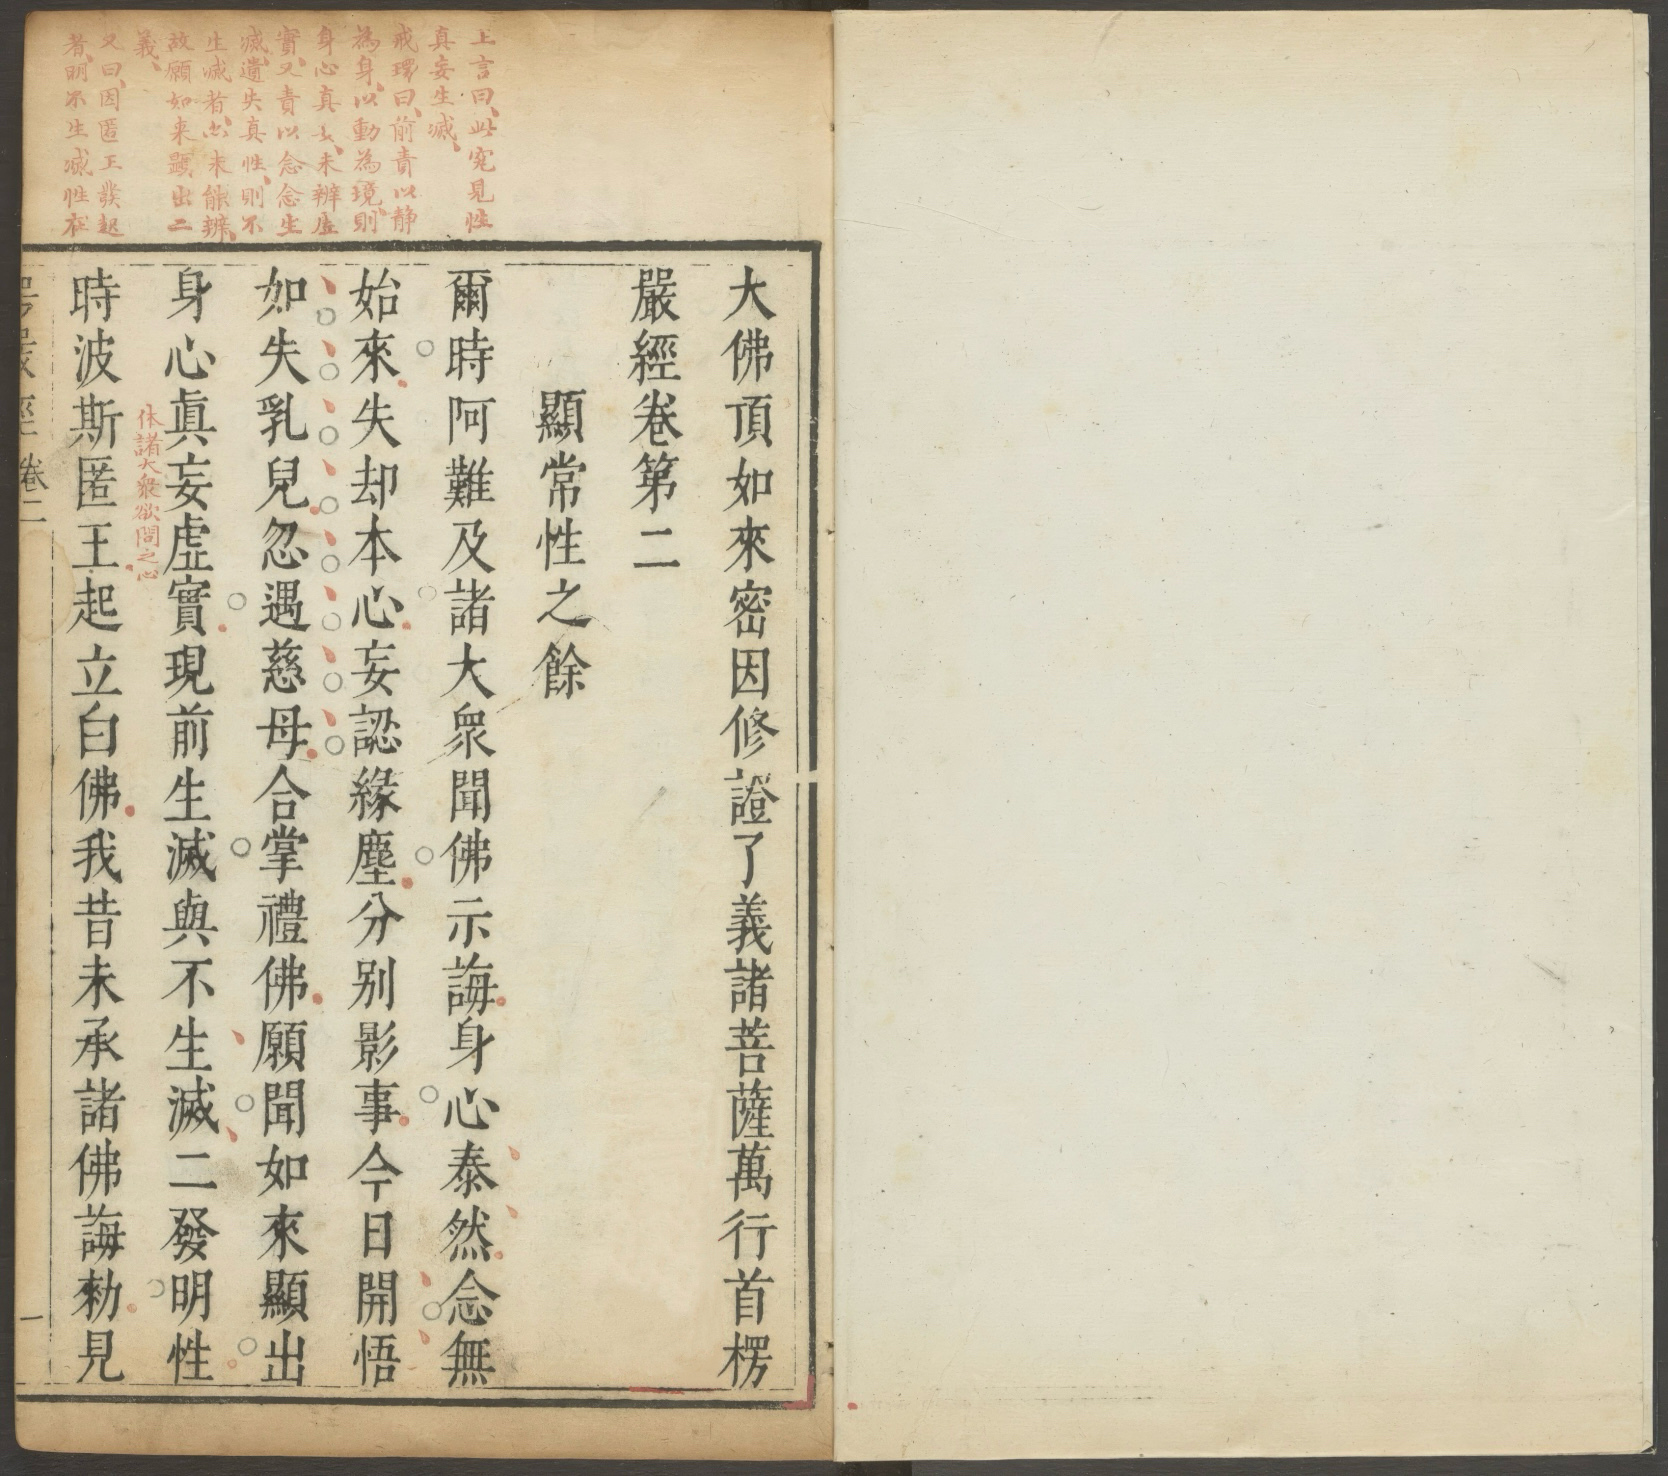 上言曰此究見性
真妄生滅
戒環曰前責以静
為身以動為境則
身心真妄未辨虛
實又責以念念生
滅遺失真性則不
生滅者亦未能辨
故願如来顕出二
義
又曰因匿王發起
者明不生滅性在
大佛頂如來密因修證了義諸菩薩萬行首楞
嚴經卷第二
顯常性之餘
爾時阿難及諸大衆聞佛示誨身心泰然念無
始來失却本心妄認緣塵分别影事今日開悟
如失乳兒忽遇慈母合掌禮佛願聞如來顯出
身心眞妄虛實現前生滅與不生滅二發明性
諸大衆欲問之心
時波斯匿王起立白佛我昔未承諸佛誨勑見
楞嚴經 卷二 一